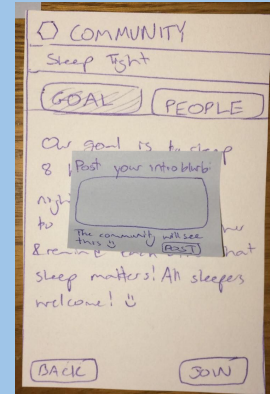 COMMUNITY
Sleep Tight
GOAL
PEOPLE
Our goal is to sleep
8
Post your intro blurb:
to
The community will see
this
POST
& remind each that
sleep matters! All sleepers
welcome!
BACK
JOIN